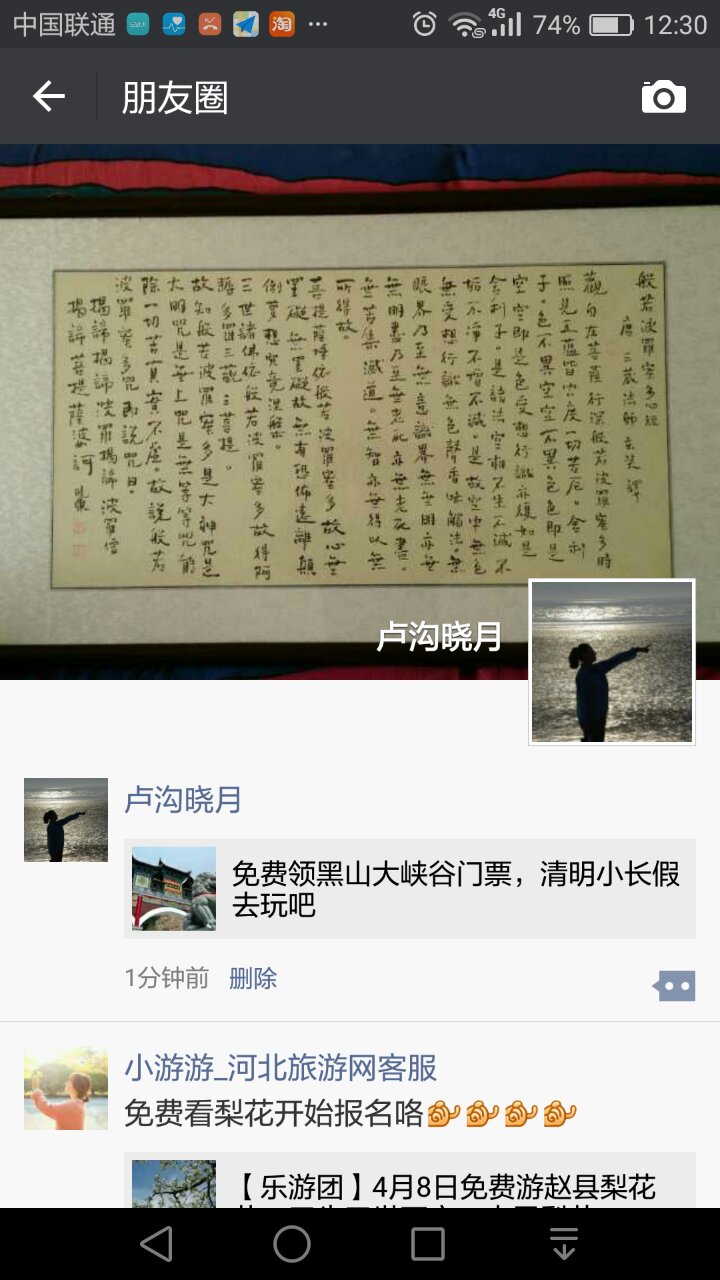 中国联通
4G
74%
12:30
朋友圈
般若波羅蜜多心經
唐三藏法師玄奘譯
觀自在菩薩行深般若波羅蜜多時
照見五蘊皆空度一切苦厄。舍利
子。色不異空空不異色色即是
空空即是色受想行識亦復如是
舍利子。是諸法空相不生不滅不
垢不淨不增不減。是故空中無色
無受想行識無色聲香味觸法。無
眼界乃至無意識界無無明亦無
無明盡乃至無老死亦無老死盡。
無苦集滅道。無智亦無得以無
所得故。
菩提薩埵依般若波羅蜜多故心無
罣礙無罣礙故無有恐怖遠離顛
倒夢想究竟涅槃。
三世諸佛依般若波羅蜜多故得阿
耨多羅三藐三菩提。
故知般若波羅蜜多是大神咒是
大明咒是無上咒是無等等咒能
除一切苦真實不虛。故說般若
波羅蜜多咒即說咒曰。
揭諦揭諦波羅揭諦波羅僧
揭諦菩提薩婆訶
卢沟晓月
卢沟晓月
免费领黑山大峡谷门票，清明小长假
去玩吧
1分钟前 删除
小游游_河北旅游网客服
免费看梨花开始报名咯
【乐游团】4月8日免费游赵县梨花